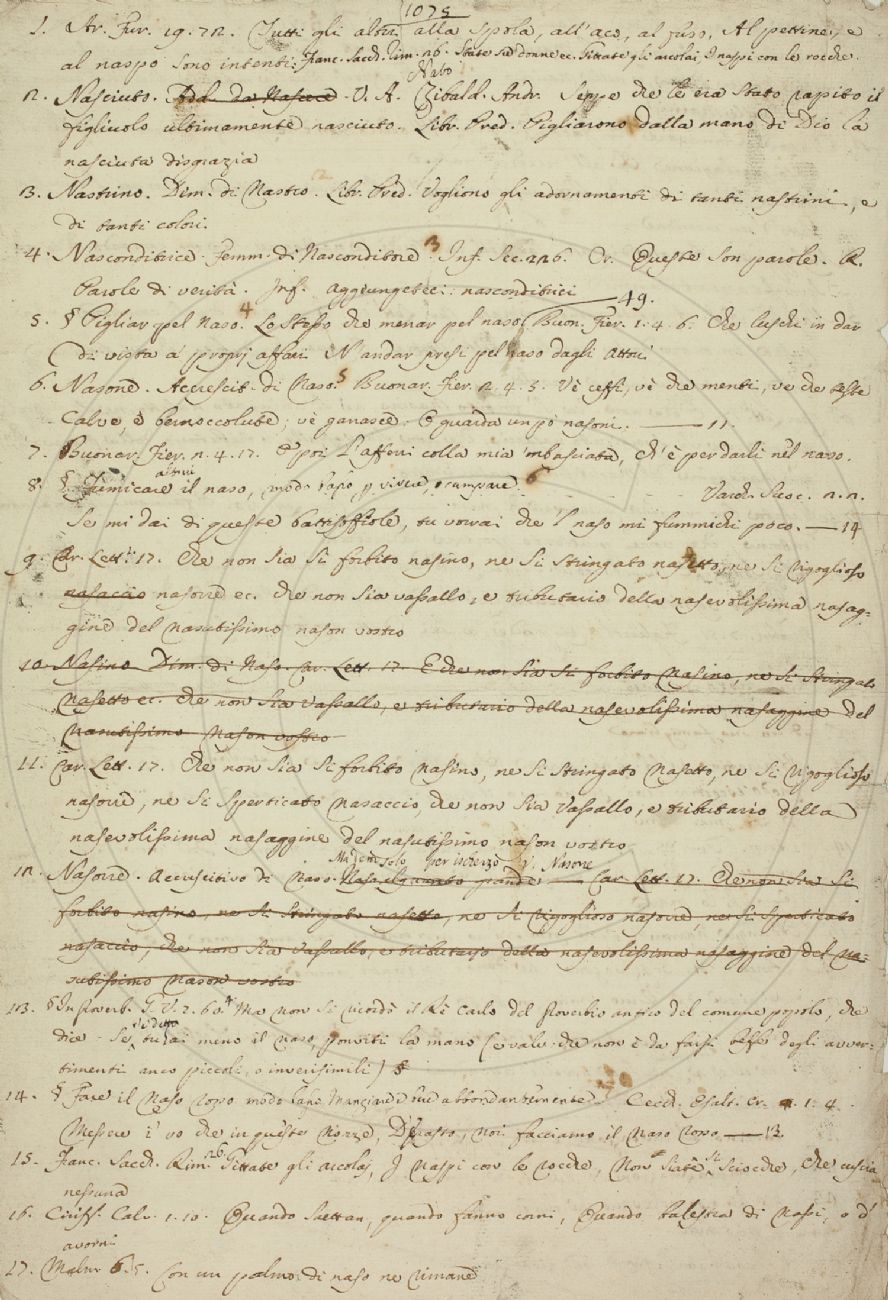 1075
1. Ar. Fur. 19. 72. Tutti gli altri alla spola, all'aco, al fuso, Al pettine, e
al naspo sono intenti. Franc. Sacch. rim. 26. State sù donne ec. Pittate gli arcolai, I naspi con le rocche.
Nato
2. Nasciuto. Add. da Nascere. V. A. Zibald. Andr. Seppe che le era stato rapito il
figliuolo ultimamente nasciuto. Libr. Pred. Pigliarono dalla mano di Dio la
nasciuta disgrazia
3. Nastrino. Dim. di Nastro. Libr. Pred. Vogliono gli adornamenti di tanti nastrini, e
di tanti colori.
4. Nasconditrice. Femm. di Nasconditore. 3 Inf. Sec. 226. Or. Queste son parole. R.
Parole di verità. Inf. Aggiungeteci: nasconditrici 49.
5. § Pigliar pel Naso. 4 Lo stesso che menar pel naso. Buon. Fier. 1. 4. 6. Che luschi in dar
di vista a' proprj affari N'andar presi pel naso dagli Attori
6. Nasone. Accrescit. di Naso. 5 Buonar. Fier. 2. 4. 3. V'è ceffi, v'è che menti, ve che teste
Calve, e bernoccolute; v'è ganasce: E guarda un pò nasoni. 11.
7. Buonar. Fier. 2. 4. 17. E poi L'afferri colla mia 'mbasciata, ch'è per darli nel naso.
altrui
8. § Fumicare il naso, 6 Varch. Suoc. 2. 2.
Se mi dai di queste battisoffiole, tu vorrai che 'l naso mi fummichi poco. 14
9. Car. Lett. 17. Che non sia sì forbito nasino, ne sì stringato nasetto, ne sì rigoglioso
nasaccio nasorre ec. che non sia vassallo, e tributario della nasevolissima nasag-
gine del nasutissimo nason vostro
10. Nasino Dim. di Naso. Car. Lett. 17. E che non sia sì forbito nasino, ne sì stringato
nasetto ec. che non sia vassallo, e tributario della nasevolissima nasaggine del
Nasutissimo Nason vostro
11. Car. Lett. 17. Che non sia sì forbito nasino, ne sì stringato nasetto, ne sì rigoglioso
nasorre, ne sì sperticato nasaccio, che non sia vassallo, e tributario della
nasevolissima nasaggine del nasutissimo nason vostro
per ischerzo V. Nasone
12. Nasorre. Accrescitivo di Naso. Naso alquanto grande Car. Lett. 17. Che non sia sì
forbito nasino, ne sì stringato nasetto, ne sì rigoglioso nasorre, ne sì sperticato
nasaccio, che non sia vassallo, e tributario della nasevolissima nasaggine del na-
sutissimo nason vostro
13. § In Proverb. G. V. 7. 60. Ma non si ricordò il Rè Carlo del proverbio antico del comune popolo, che
dice. Se tu ai meno il naso, ponviti la mano (e vale che non è da farsi beffe degli avver-
timenti anco piccoli, o inverisimili) 8
14. § Fare il Naso rosso modo Mangiare, e bere abbondantemente. Cecch. Esalt. Cr. 1. 4.
Messere i' vo che in queste Nozze, noi facciamo il Naso rosso 12
15. Franc. Sacch. Rim. 26. Pittate gli arcolaj, I Naspi con le rocche, Non siate sì sciocche, che cuscia
nessuna
16. Ciriff. Calv. 1. 10. Quando saettan, quando fanno corni, Quando balestra di Nassi, o d'
avorni
17. Malm. 6. 5. Con un palmo di naso ne rimane